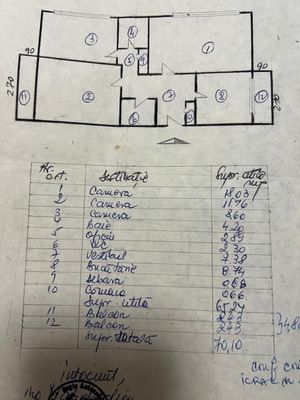 3
4
1
5
9
90
90
270
11
2
7
8
12
270
6
10
Nr. crt.
Destinatie
Supr. utila mp
1 Camera 18.03
2 Camera 11.76
3 Camera 8.60
4 Baie 4.20
5 Oficiu 2.89
6 WC 2.30
7 Vestibul 7.38
8 Bucatarie 8.74
9 Debara 0.68
10 Camara 0.66
Supr. utila
11 Balcon 2.43
12 Balcon 2.43
Supr. totala 70,10
Intocmit,